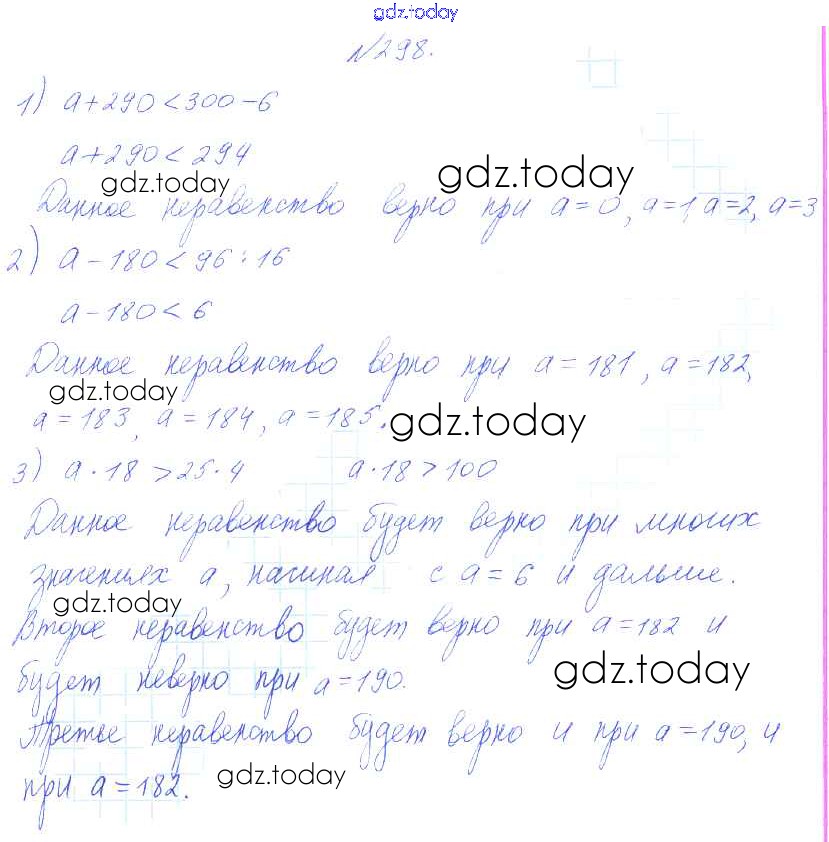 gdz.today
№298.
1) a+290<300-6
a+290<294
gdz.today
gdz.today
Данное неравенство верно при a=0, a=1, a=2, a=3
2) a-180<96:16
a-180<6
Данное неравенство верно при a=181, a=182,
gdz.today
a=183, a=184, a=185.
gdz.today
3) a·18>25·4 a·18>100
Данное неравенство будет верно при многих
значениях a, начиная с a=6 и дальше.
gdz.today
Второе неравенство будет верно при a=182 и
будет неверно при a=190.
gdz.today
Третье неравенство будет верно и при a=190, и
при a=182.
gdz.today